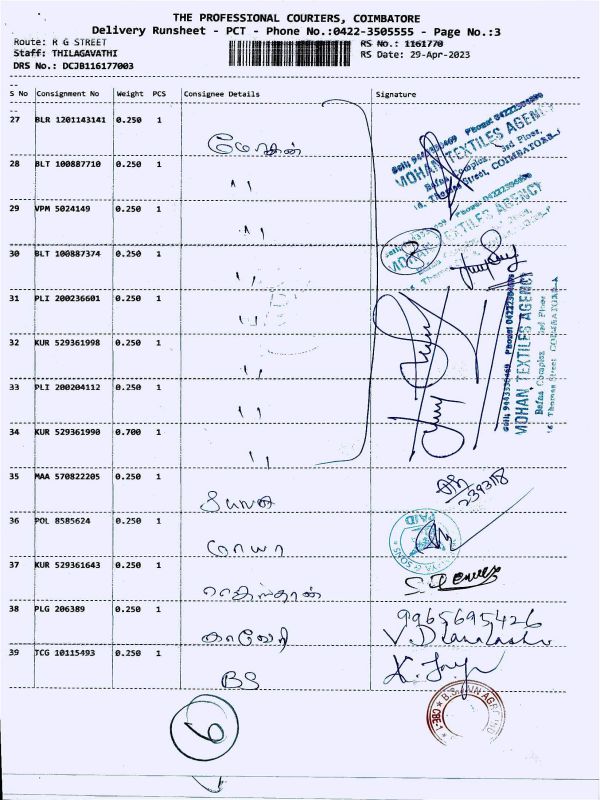 THE PROFESSIONAL COURIERS, COIMBATORE
Delivery Runsheet - PCT - Phone No.:0422-3505555 - Page No.:3
Route: R G STREET
RS No.: 1161770
Staff: THILAGAVATHI
RS Date: 29-Apr-2023
DRS No.: DCJB116177003
S No Consignment No Weight PCS Consignee Details Signature
27 BLR 1201143141 0.250 1
மோகன்
MOHAN TEXTILES AGENCY
Bafna Complex, 3rd Floor,
16, Thomas Street, COIMBATORE-1
28 BLT 100887710 0.250 1
" "
29 VPM 5024149 0.250 1
" "
30 BLT 100887374 0.250 1
" "
8
31 PLI 200236601 0.250 1
" "
MOHAN TEXTILES AGENCY
Bafna Complex 3rd Floor
16, Thomas Street COIMBATORE-1
32 KUR 529361998 0.250 1
" "
33 PLI 200204112 0.250 1
" "
34 KUR 529361990 0.700 1
" "
35 MAA 570822205 0.250 1
36 POL 8585624 0.250 1
மாயா
PAID
& SONS
37 KUR 529361643 0.250 1
ராஜஸ்தான்
38 PLG 206389 0.250 1
காவேரி
9965695426
39 TCG 10115493 0.250 1
BS
6